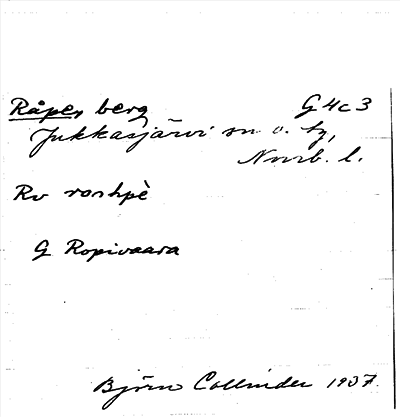 Råpe, berg G4c3
Jukkasjärvi sn o. tg,
Norrb. l.
Rv roshpè
G Ropivaara
Björn Collinder 1937.